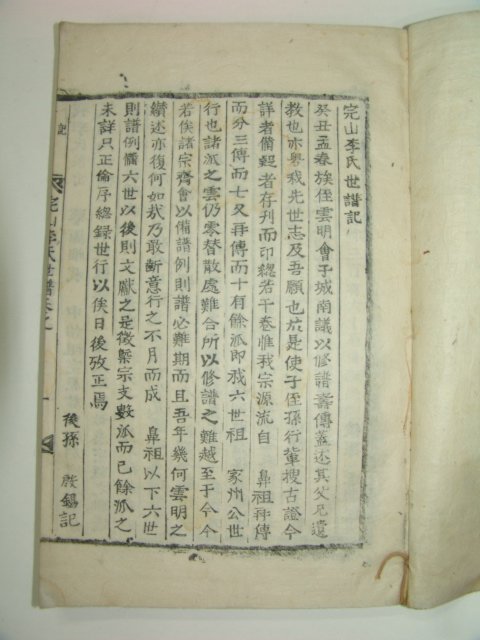 完山李氏世譜記
癸丑孟春族侄雲明會于城南議以修譜壽傳蓋述其父兄遺
教也亦與我先世志及吾願也於是使子侄孫行輩搜古證今
詳者備疑者存刊而印總若干卷惟我宗源流自 鼻祖再傳
而分三傳而七又再傳而十有餘派即我六世祖 家州公世
行也諸派之雲仍零替散處難合所以修譜之難越至于今今
若俟諸宗齊會以備譜例則譜必難期而且吾年幾何雲明之
纘述亦復何如哉乃敢斷意行之不月而成 鼻祖以下六世
則譜例備六世以後則文獻之是徵槩宗支數派而已餘派之
未詳只正倫序總錄世行以俟日後攷正焉
後孫 殷錫記
完山李氏世譜卷之